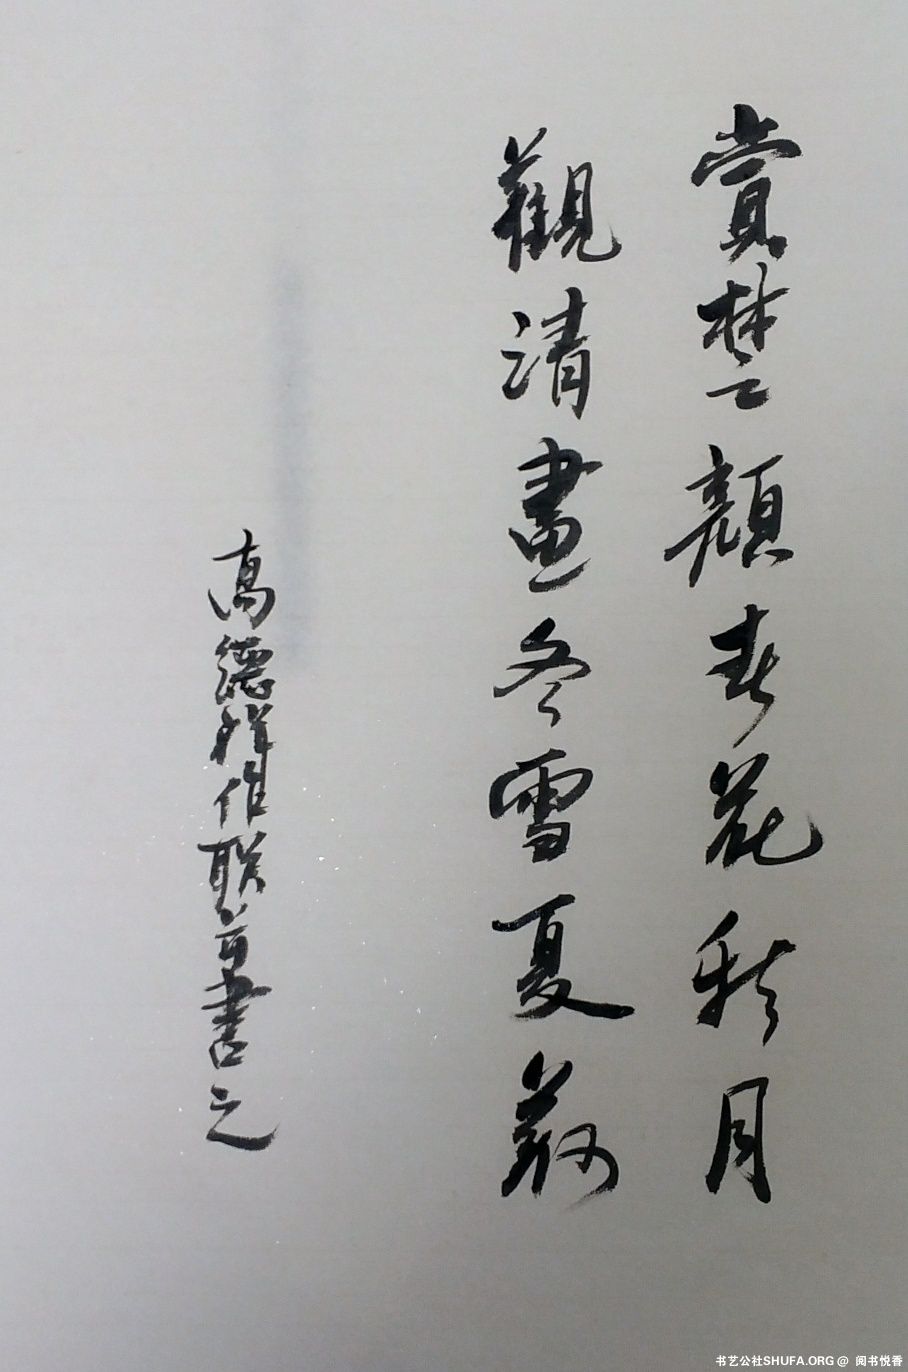 賞楚顏春花秋月
觀清畫冬雪夏荷
高德祥作联并書之
书艺公社SHUFA.ORG @ 阅书悦香